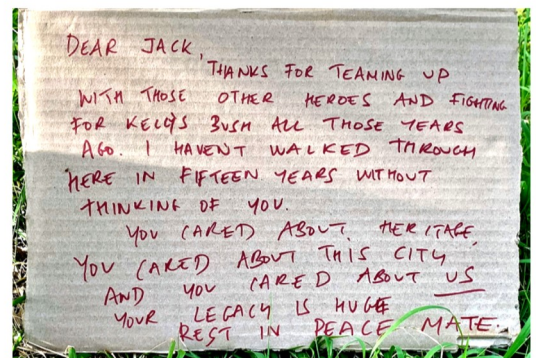 DEAR JACK,
THANKS FOR TEAMING UP
WITH THOSE OTHER HEROES AND FIGHTING
FOR KELLYS BUSH ALL THOSE YEARS
AGO. I HAVEN'T WALKED THROUGH
HERE IN FIFTEEN YEARS WITHOUT
THINKING OF YOU.
YOU CARED ABOUT HERITAGE,
YOU CARED ABOUT THIS CITY
AND YOU CARED ABOUT US
YOUR LEGACY IS HUGE
REST IN PEACE MATE.